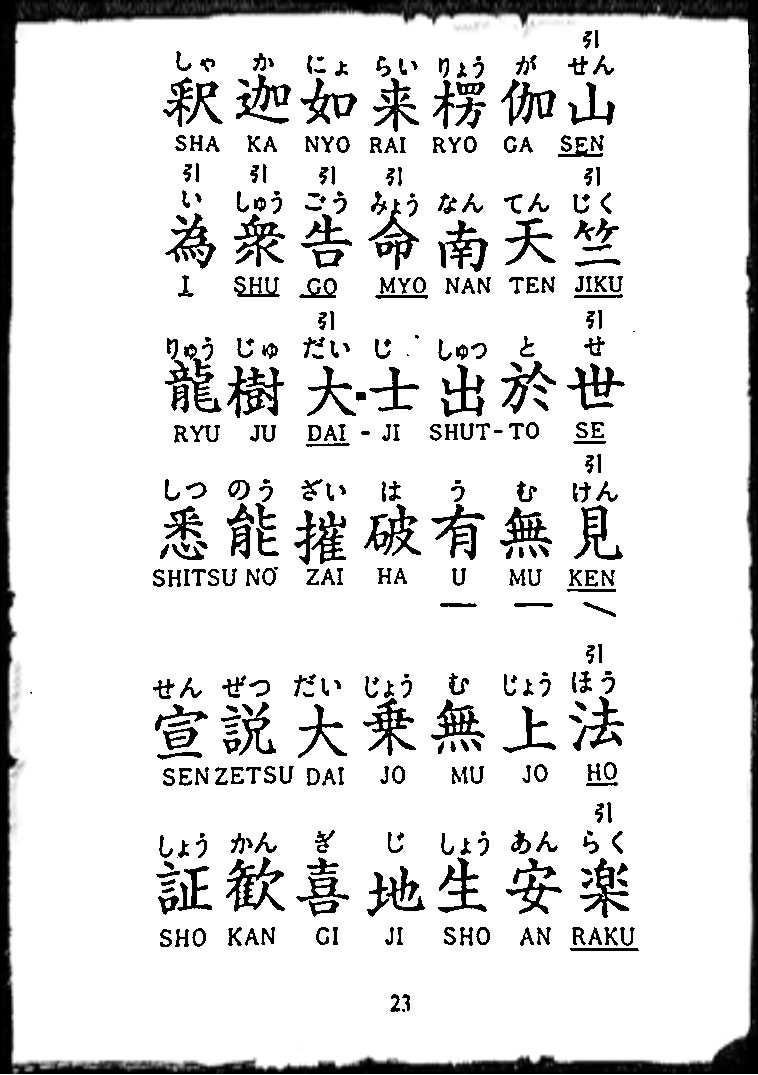 引
しゃ か にょ らい りょう が せん
釈 迦 如 来 楞 伽 山
SHA KA NYO RAI RYO GA SEN
引 引 引 引 引
い しゅう ごう みょう なん てん じく
為 衆 告 命 南 天 竺
I SHU GO MYO NAN TEN JIKU
引 引
りゅう じゅ だい じ しゅつ と せ
龍 樹 大-士 出 於 世
RYU JU DAI - JI SHUT-TO SE
引
しつ のう ざい は う む けん
悉 能 摧 破 有 無 見
SHITSU NO ZAI HA U MU KEN
引
せん ぜつ だい じょう む じょう ほう
宣 説 大 乗 無 上 法
SEN ZETSU DAI JO MU JO HO
引
しょう かん ぎ じ しょう あん らく
証 歓 喜 地 生 安 楽
SHO KAN GI JI SHO AN RAKU
23